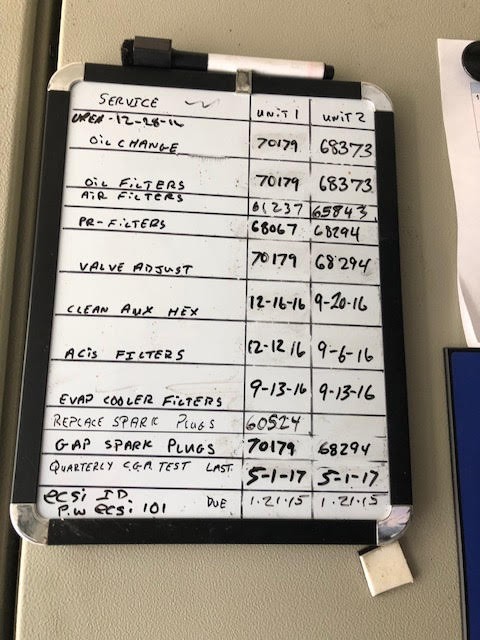 SERVICE UNIT 1 UNIT 2
UPED-12-28-16
OIL CHANGE 70179 68373
OIL FILTERS 70179 68373
AIR FILTERS 61237 65843
PR-FILTERS 68067 68294
VALVE ADJUST 70179 68294
CLEAN AUX HEX 12-16-16 9-20-16
ACIS FILTERS 12-12 16 9-6-16
EVAP COOLER FILTERS 9-13-16 9-13-16
REPLACE SPARK PLUGS 60524
GAP SPARK PLUGS 70179 68294
QUARTERLY C.G.A. TEST LAST. 5-1-17 5-1-17
ecsi ID. DUE 1.21.15 1.21.15
P.W ecsi 101